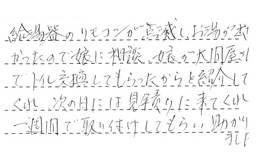 給湯器のリモコンが点滅し、お湯が出
かったので娘に相談、娘が大間屋さ
でトイレ交換してもらったからと紹介して
くれ、次の日には見積りに来てくれ
一週間で取り付けしてもらい助かり
ました